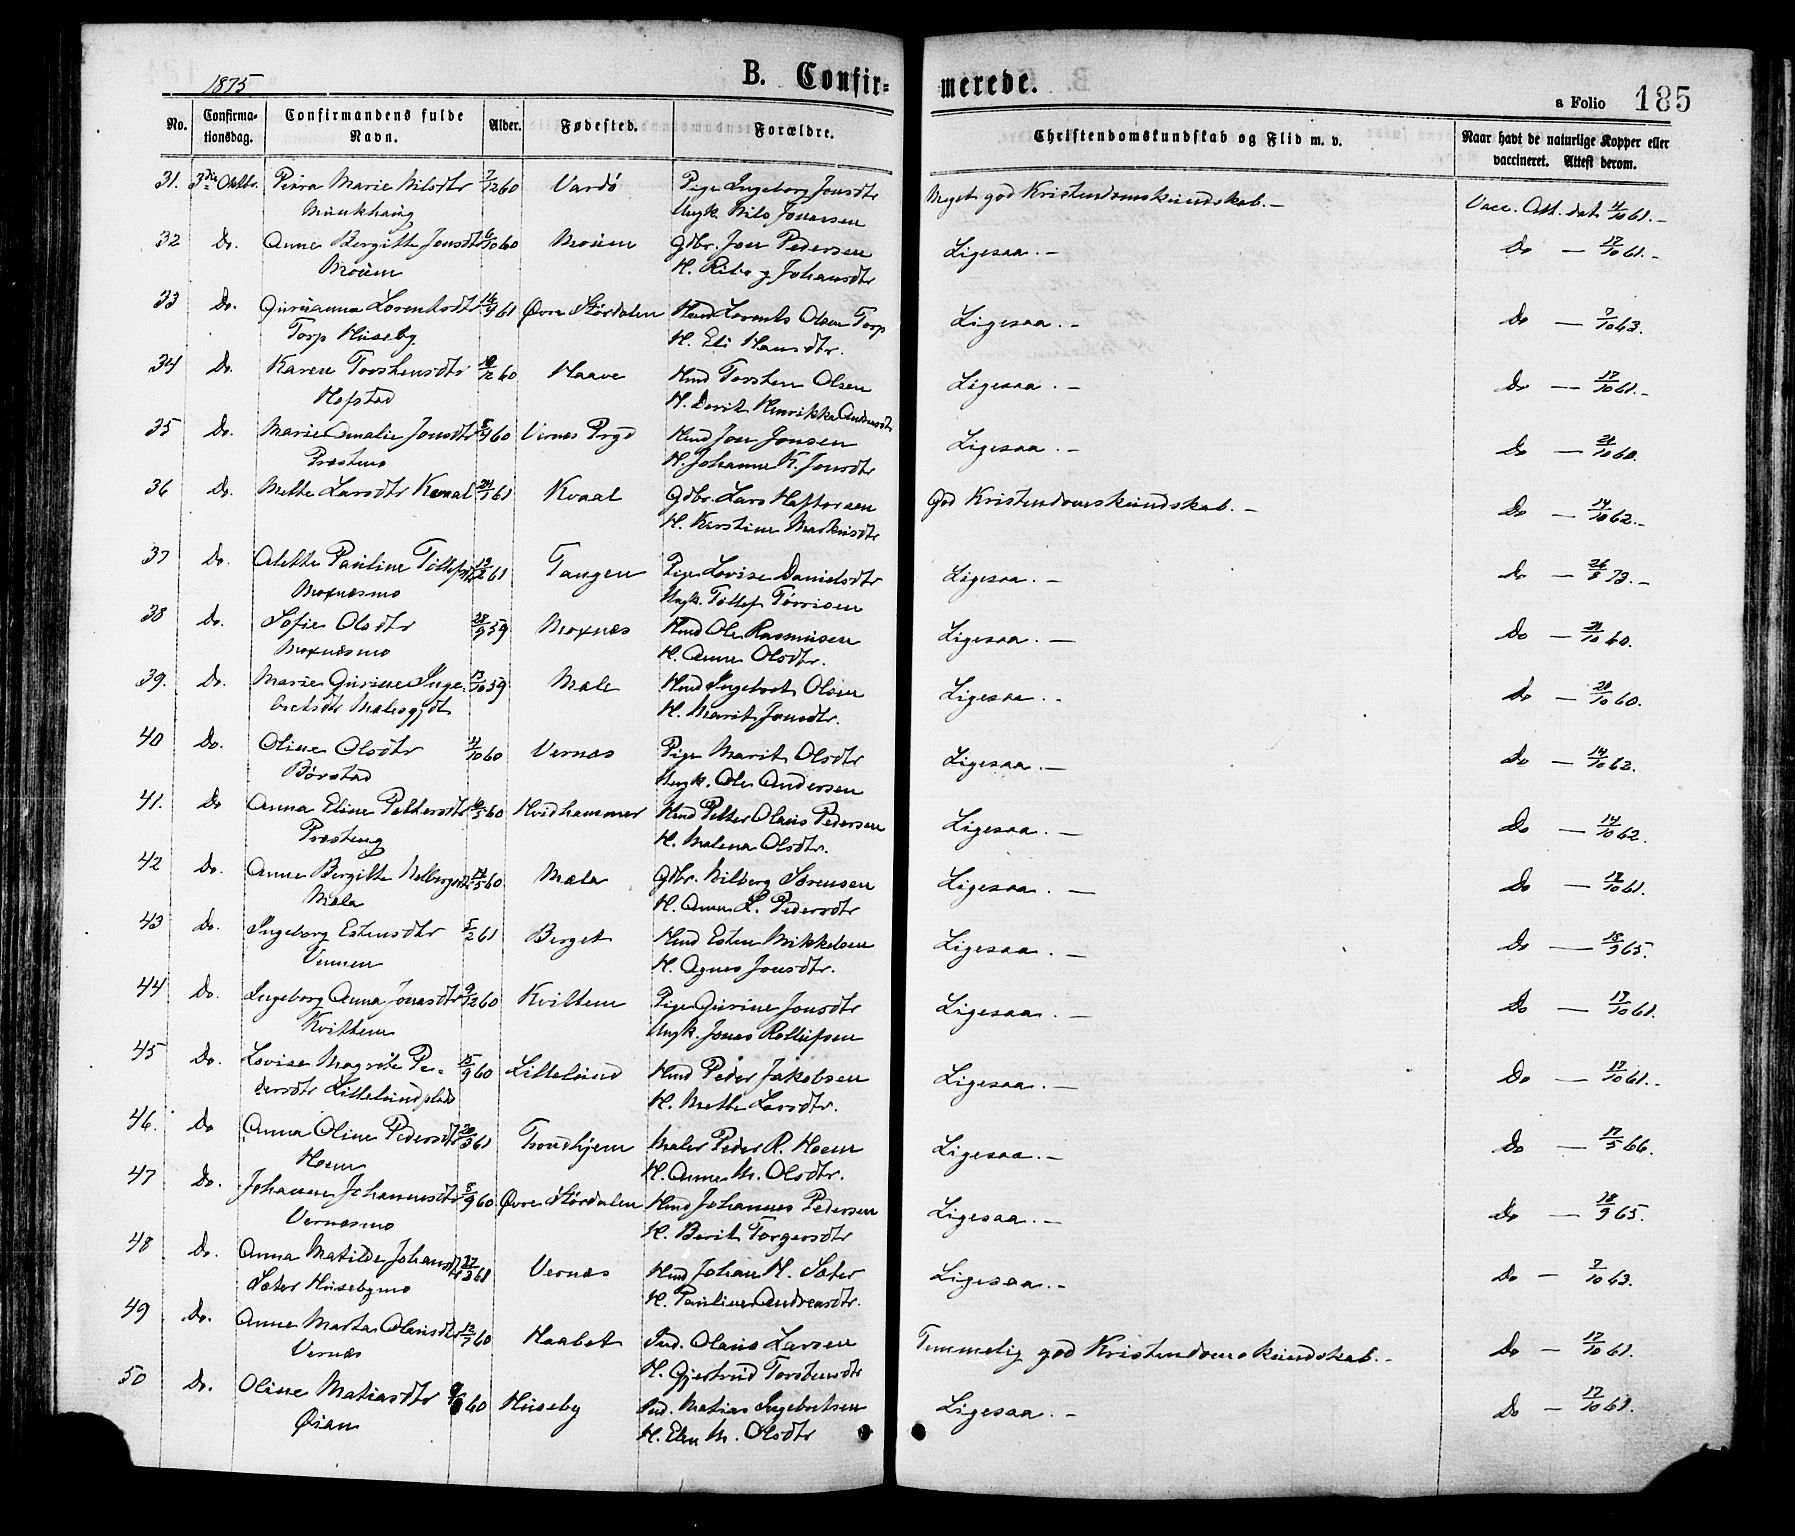 1875
B. Confir-
merede.
a Folio 185
No.
Confirma-
tionsdag.
Confirmandens fulde
Navn.
Alder.
Fødested.
Forældre.
Christendomskundskab og Flid m. v.
Naar havt de naturlige Kopper eller
vaccineret. Attest derom.
31. 3die Oktbr. Petra Marie Nilsdtr 7/12 60 Vardø Pige Ingeborg Jonsdtr Meget god Kristendomskundskab. — Vacc. Att. dat. 4/10 61. —
Munkhaug Ungk. Nils Jonassen
32 Do. Anne Bergitte Jonsdtr 6/10 60 Moum Gdbr. Jon Pedersen Ligesaa. — Do — 17/10 61. —
Moum H. Johansdtr
33 Do. Gurianna Lorentsdtr 14/9 61 Øvre Størdalen Hmd Lorents Olsen Torp Ligesaa. — Do — 7/10 63.
Torp Huseby H. Eli Hansdtr.
34 Do. Karen Torstensdtr 10/12 60 Haave Hmd Torsten Olsen Ligesaa. — Do — 17/10 61. —
Hofstad H. Berit Henrikka Andreasdtr
35 Do. Marie Amalie Jonsdtr 8/9 60 Vernes Prgd Hmd Jon Jonsen Ligesaa. — Do — 21/10 60.
Præstmo H. Johanna K. Jonsdtr
36 Do. Mette Larsdtr Kvaal 24/1 61 Kvaal Gdbr. Lars Haftorsen God Kristendomskundskab. — Do — 14/10 62. —
H. Kerstine Markusdtr
37 Do. Alette Pauline Tollefsdtr 19/2 61 Tangen Pige Lovise Danielsdtr Ligesaa. — Do — 26/8 73. —
Moxnæsmo Ungk. Tollef Torrisen
38 Do. Sofie Olsdtr 28/9 59 Moxnæs Hmd Ole Rasmusen Ligesaa. — Do — 21/10 60.
Moxnæsmo H. Anne Olsdtr.
39. Do. Marie Gurine Inge- 17/10 59 Mæle Hmd Ingebret Olsen Ligesaa. — Do — 20/10 60.
bretsdtr H. Marit Jonsdtr.
40 Do. Oline Olsdtr 4/10 60 Vernæs Pige Marit Olsdtr Ligesaa. — Do — 14/10 62.
Børstad Ungk. Ole Andersen
41. Do Anna Eline Pettersdtr 16/5 60 Hvidhammer Hmd Petter Olaus Pedersen Ligesaa. — Do — 14/10 62.
Præsteng H. Malena Olsdtr.
42 Do. Anne Bergitte 14/5 60 Mæla Gdbr. Nilberg Sørensen Ligesaa. — Do — 17/10 61.
Mæla H. Anne L. Pedersdtr
43 Do. Ingeborg Estensdtr 5/2 61 Berget Hmd Esten Mikkelsen Ligesaa. — Do — 18/9 65.
Vennen H. Agnes Jonsdtr.
44 Do. Ingeborg Anna Jonasdtr 9/12 60 Kvittem Pige Gurine Jonsdtr Ligesaa. — Do — 17/10 61.
Kvittem Ungk. Jonas Rollufsen
45 Do. Lovise Magrete Pe- 15/9 60 Lillelund Hmd Peder Jakobsen Ligesaa. — Do — 17/10 61. —
dersdtr Lillelundplads H. Mette Larsdtr.
46. Do Anna Oline Pedersdtr 20/3 61 Trondhjem Maler Peder R. Hoem Ligesaa. — Do — 17/5 66.
Hoem H. Anne M. Olsdtr.
47 Do. Johanne Johannesdtr 8/9 60 Øvre Størdalen Hmd Johannes Pedersen Ligesaa. — Do — 18/9 65.
Vernæsmo H. Berit Torgersdtr
48 Do. Anna Matilde Johansdtr 27/3 61 Vernæs Hmd Johan H. Sæter Ligesaa. — Do — 7/10 63.
Sæter Husebymo H. Pauline Andreasdtr.
49 Do. Anne Marta Olausdtr 12/7 60 Haabet Ind. Olaus Larsen Temmelig god Kristendomskundskab. — Do — 17/10 61.
Vernæs H. Gjertrud Torstensdtr
50 Do. Oline Matiasdtr 60 Huseby Ind. Matias Ingebretsen Ligesaa. — Do — 17/10 61.
Øian H. Elen M. Olsdtr